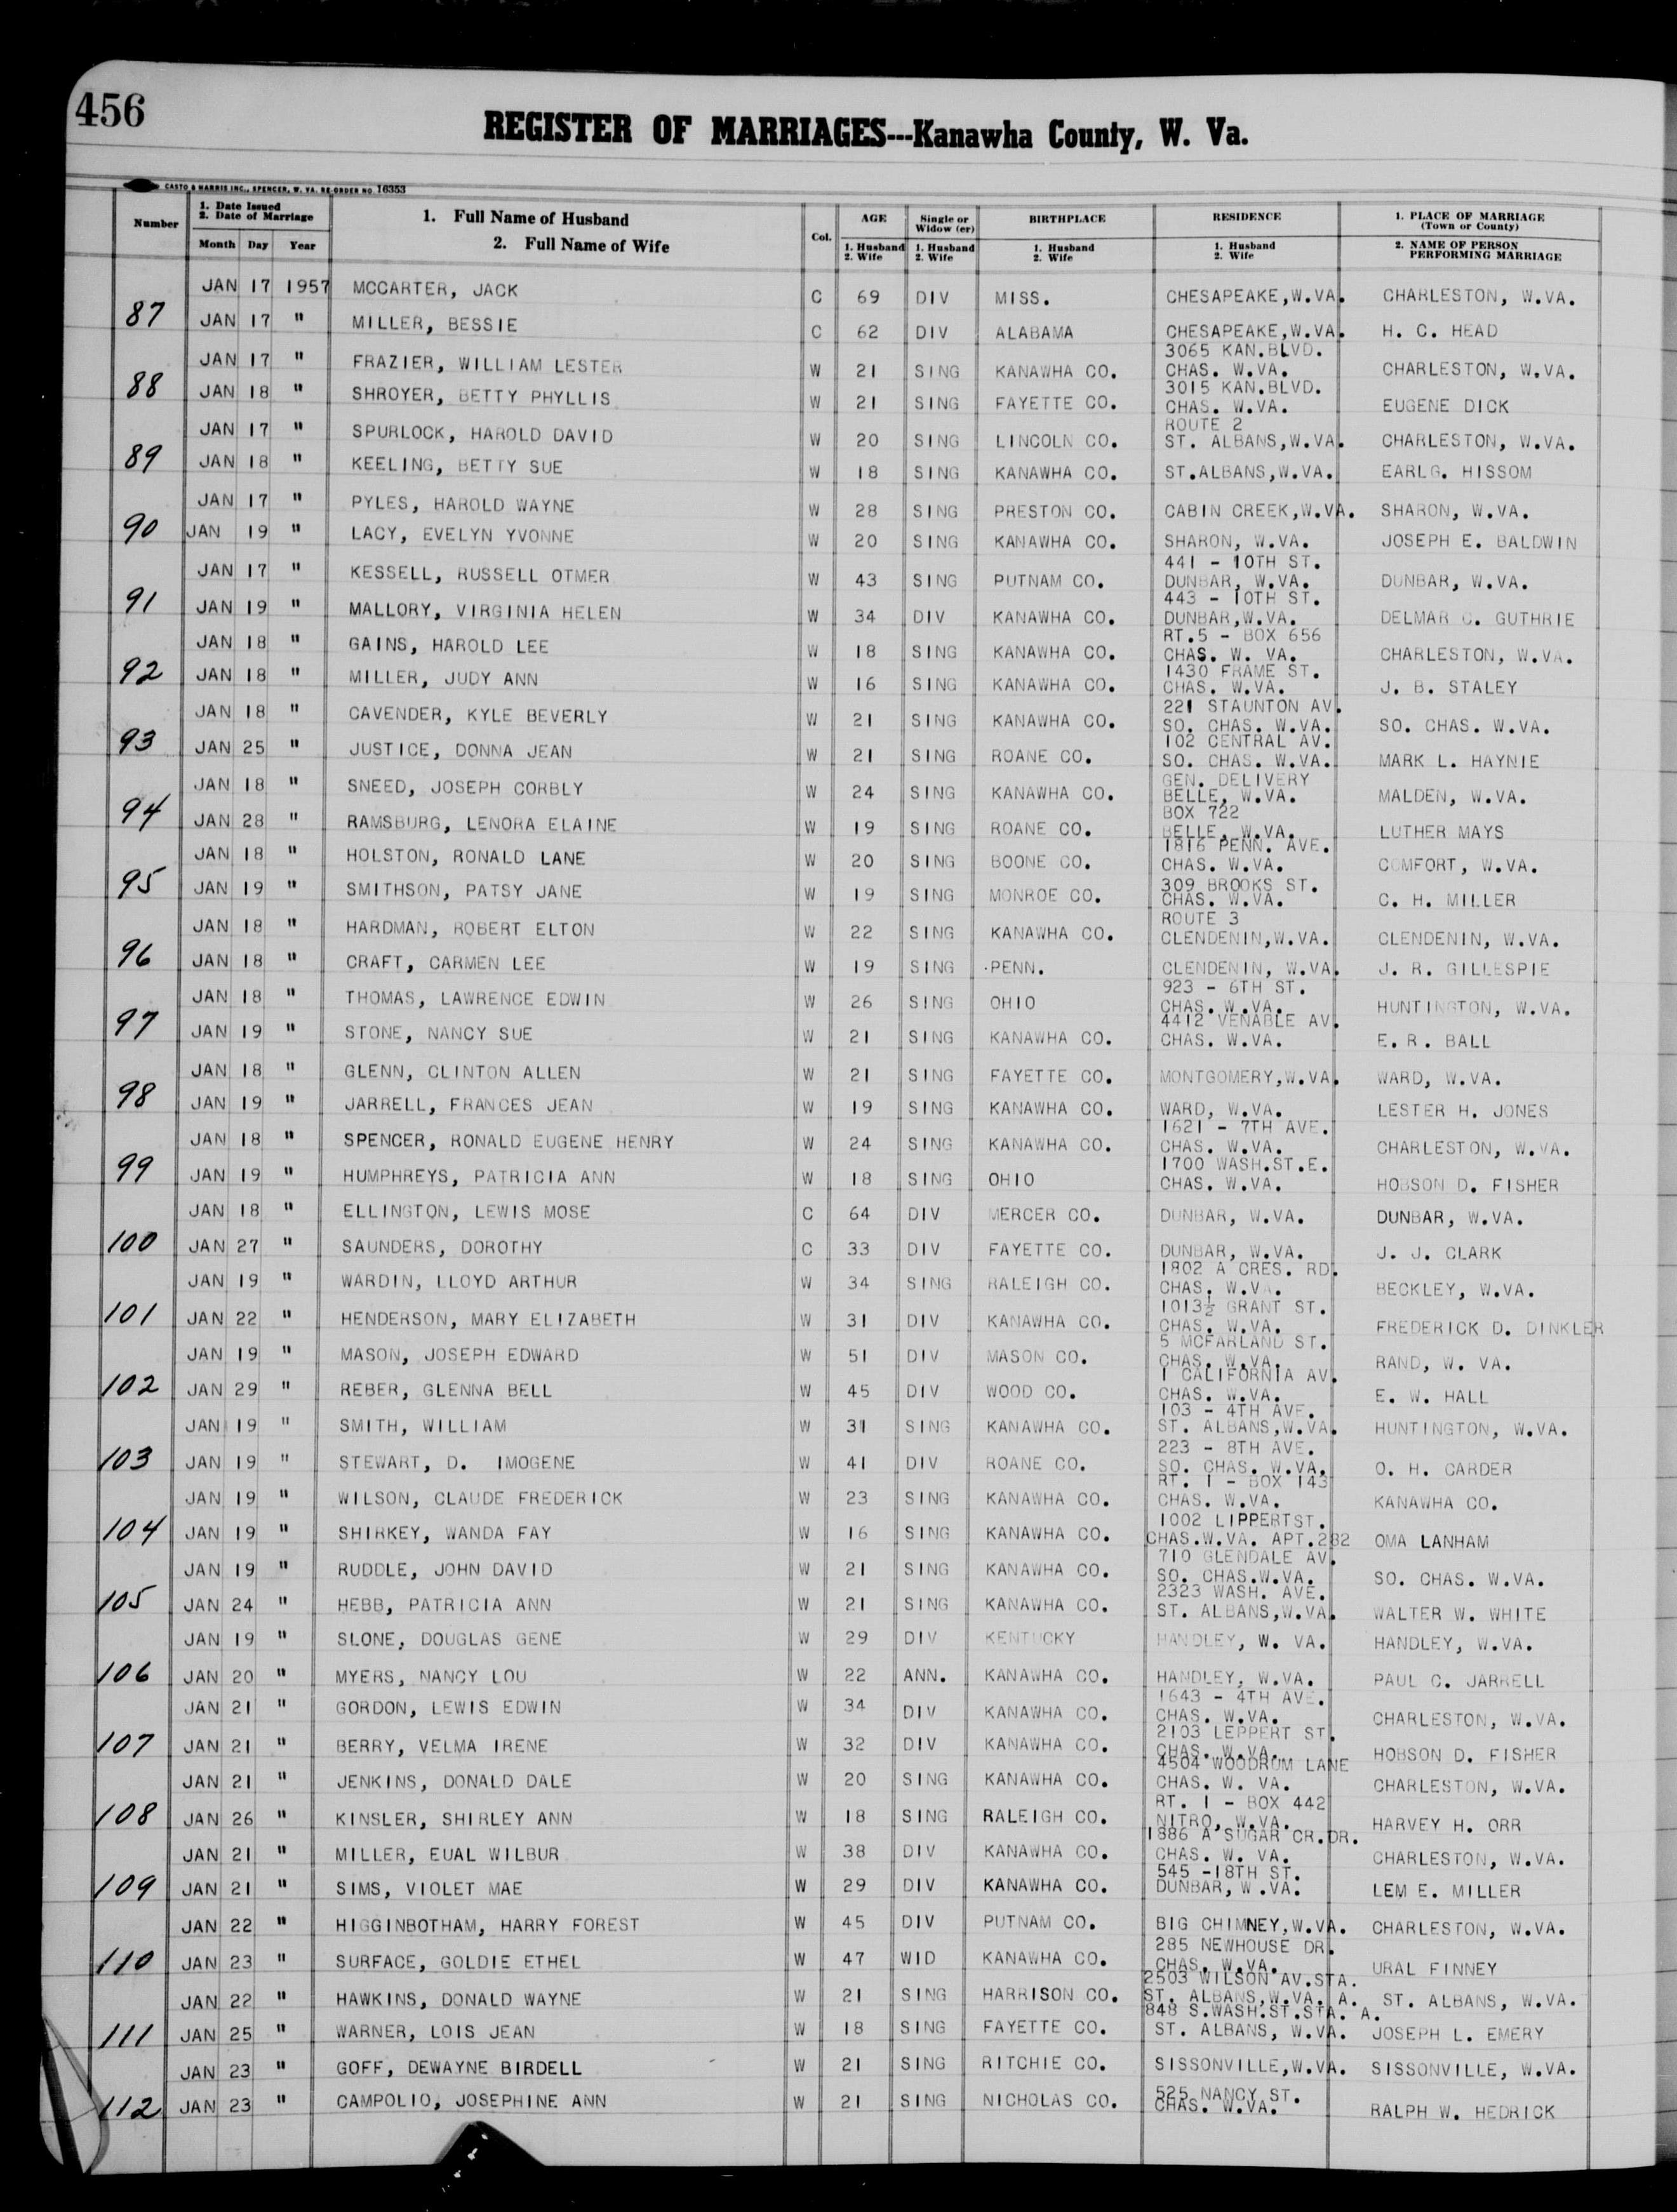 456
REGISTER OF MARRIAGES---Kanawha County, W. Va.
CASTO & HARRIS INC., SPENCER, W. VA. RE-ORDER NO. 16353
Number 1. Date Issued 2. Date of Marriage Month Day Year 1. Full Name of Husband 2. Full Name of Wife Col. AGE 1. Husband 2. Wife Single or Widow (er) 1. Husband 2. Wife BIRTHPLACE 1. Husband 2. Wife RESIDENCE 1. Husband 2. Wife 1. PLACE OF MARRIAGE (Town or County) 2. NAME OF PERSON PERFORMING MARRIAGE
JAN 17 1957 MCCARTER, JACK C 69 DIV MISS. CHESAPEAKE, W.VA. CHARLESTON, W.VA.
87 JAN 17 " MILLER, BESSIE C 62 DIV ALABAMA CHESAPEAKE, W.VA. H. C. HEAD
JAN 17 " FRAZIER, WILLIAM LESTER W 21 SING KANAWHA CO. 3065 KAN.BLVD. CHAS. W.VA. CHARLESTON, W.VA.
88 JAN 18 " SHROYER, BETTY PHYLLIS W 21 SING FAYETTE CO. 3015 KAN.BLVD. CHAS. W.VA. EUGENE DICK
JAN 17 " SPURLOCK, HAROLD DAVID W 20 SING LINCOLN CO. ROUTE 2 ST. ALBANS, W.VA. CHARLESTON, W.VA.
89 JAN 18 " KEELING, BETTY SUE W 18 SING KANAWHA CO. ST.ALBANS, W.VA. EARLG. HISSOM
JAN 17 " PYLES, HAROLD WAYNE W 28 SING PRESTON CO. CABIN CREEK, W.VA. SHARON, W.VA.
90 JAN 19 " LACY, EVELYN YVONNE W 20 SING KANAWHA CO. SHARON, W.VA. JOSEPH E. BALDWIN
JAN 17 " KESSELL, RUSSELL OTMER W 43 SING PUTNAM CO. 441 - 10TH ST. DUNBAR, W.VA. DUNBAR, W.VA.
91 JAN 19 " MALLORY, VIRGINIA HELEN W 34 DIV KANAWHA CO. 443 - 10TH ST. DUNBAR, W.VA. DELMAR C. GUTHRIE
JAN 18 " GAINS, HAROLD LEE W 18 SING KANAWHA CO. RT.5 - BOX 656 CHAS. W. VA. CHARLESTON, W.VA.
92 JAN 18 " MILLER, JUDY ANN W 16 SING KANAWHA CO. 1430 FRAME ST. CHAS. W.VA. J. B. STALEY
JAN 18 " CAVENDER, KYLE BEVERLY W 21 SING KANAWHA CO. 221 STAUNTON AV. SO. CHAS. W.VA. SO. CHAS. W.VA.
93 JAN 25 " JUSTICE, DONNA JEAN W 21 SING ROANE CO. 102 CENTRAL AV. SO. CHAS. W.VA. MARK L. HAYNIE
JAN 18 " SNEED, JOSEPH CORBLY W 24 SING KANAWHA CO. GEN. DELIVERY BELLE, W.VA. MALDEN, W.VA.
94 JAN 28 " RAMSBURG, LENORA ELAINE W 19 SING ROANE CO. BOX 722 BELLE, W.VA. LUTHER MAYS
JAN 18 " HOLSTON, RONALD LANE W 20 SING BOONE CO. 1816 PENN. AVE. CHAS. W.VA. COMFORT, W.VA.
95 JAN 19 " SMITHSON, PATSY JANE W 19 SING MONROE CO. 309 BROOKS ST. CHAS. W.VA. C. H. MILLER
JAN 18 " HARDMAN, ROBERT ELTON W 22 SING KANAWHA CO. ROUTE 3 CLENDENIN, W.VA. CLENDENIN, W.VA.
96 JAN 18 " CRAFT, CARMEN LEE W 19 SING PENN. CLENDENIN, W.VA. J. R. GILLESPIE
JAN 18 " THOMAS, LAWRENCE EDWIN W 26 SING OHIO 923 - 6TH ST. CHAS. W.VA. HUNTINGTON, W.VA.
97 JAN 19 " STONE, NANCY SUE W 21 SING KANAWHA CO. 4412 VENABLE AV. CHAS. W.VA. E. R. BALL
JAN 18 " GLENN, CLINTON ALLEN W 21 SING FAYETTE CO. MONTGOMERY, W.VA. WARD, W.VA.
98 JAN 19 " JARRELL, FRANCES JEAN W 19 SING KANAWHA CO. WARD, W.VA. LESTER H. JONES
JAN 18 " SPENCER, RONALD EUGENE HENRY W 24 SING KANAWHA CO. 1621 - 7TH AVE. CHAS. W.VA. CHARLESTON, W.VA.
99 JAN 19 " HUMPHREYS, PATRICIA ANN W 18 SING OHIO 1700 WASH.ST.E. CHAS. W.VA. HOBSON D. FISHER
JAN 18 " ELLINGTON, LEWIS MOSE C 64 DIV MERCER CO. DUNBAR, W.VA. DUNBAR, W.VA.
100 JAN 27 " SAUNDERS, DOROTHY C 33 DIV FAYETTE CO. DUNBAR, W.VA. J. J. CLARK
JAN 19 " WARDIN, LLOYD ARTHUR W 34 SING RALEIGH CO. 1802 A CRES. RD. CHAS. W.VA. BECKLEY, W.VA.
101 JAN 22 " HENDERSON, MARY ELIZABETH W 31 DIV KANAWHA CO. 1013½ GRANT ST. CHAS. W.VA. FREDERICK D. DINKLER
JAN 19 " MASON, JOSEPH EDWARD W 51 DIV MASON CO. 5 MCFARLAND ST. CHAS. W.VA. RAND, W. VA.
102 JAN 29 " REBER, GLENNA BELL W 45 DIV WOOD CO. 1 CALIFORNIA AV. CHAS. W.VA. E. W. HALL
JAN 19 " SMITH, WILLIAM W 31 SING KANAWHA CO. 103 - 4TH AVE. ST. ALBANS, W.VA. HUNTINGTON, W.VA.
103 JAN 19 " STEWART, D. IMOGENE W 41 DIV ROANE CO. 223 - 8TH AVE. SO. CHAS. W.VA. O. H. CARDER
JAN 19 " WILSON, CLAUDE FREDERICK W 23 SING KANAWHA CO. RT. 1 - BOX 143 CHAS. W.VA. KANAWHA CO.
104 JAN 19 " SHIRKEY, WANDA FAY W 16 SING KANAWHA CO. 1002 LIPPERTST. CHAS.W.VA. APT.282 OMA LANHAM
JAN 19 " RUDDLE, JOHN DAVID W 21 SING KANAWHA CO. 710 GLENDALE AV. SO. CHAS.W.VA. SO. CHAS. W.VA.
105 JAN 24 " HEBB, PATRICIA ANN W 21 SING KANAWHA CO. 2323 WASH. AVE. ST. ALBANS, W.VA. WALTER W. WHITE
JAN 19 " SLONE, DOUGLAS GENE W 29 DIV KENTUCKY HANDLEY, W. VA. HANDLEY, W.VA.
106 JAN 20 " MYERS, NANCY LOU W 22 ANN. KANAWHA CO. HANDLEY, W.VA. PAUL C. JARRELL
JAN 21 " GORDON, LEWIS EDWIN W 34 DIV KANAWHA CO. 1643 - 4TH AVE. CHAS. W.VA. CHARLESTON, W.VA.
107 JAN 21 " BERRY, VELMA IRENE W 32 DIV KANAWHA CO. 2103 LEPPERT ST. CHAS. W.VA. HOBSON D. FISHER
JAN 21 " JENKINS, DONALD DALE W 20 SING KANAWHA CO. 4504 WOODRUM LANE CHAS. W. VA. CHARLESTON, W.VA.
108 JAN 26 " KINSLER, SHIRLEY ANN W 18 SING RALEIGH CO. RT. 1 - BOX 442 NITRO, W.VA. HARVEY H. ORR
JAN 21 " MILLER, EUAL WILBUR W 38 DIV KANAWHA CO. 1886 A SUGAR CR.DR. CHAS. W. VA. CHARLESTON, W.VA.
109 JAN 21 " SIMS, VIOLET MAE W 29 DIV KANAWHA CO. 545 -18TH ST. DUNBAR, W.VA. LEM E. MILLER
JAN 22 " HIGGINBOTHAM, HARRY FOREST W 45 DIV PUTNAM CO. BIG CHIMNEY, W.VA. CHARLESTON, W.VA.
110 JAN 23 " SURFACE, GOLDIE ETHEL W 47 WID KANAWHA CO. 285 NEWHOUSE DR. CHAS. W.VA. URAL FINNEY
JAN 22 " HAWKINS, DONALD WAYNE W 21 SING HARRISON CO. 2503 WILSON AV.STA. ST. ALBANS, W.VA. A. ST. ALBANS, W.VA.
111 JAN 25 " WARNER, LOIS JEAN W 18 SING FAYETTE CO. 848 S.WASH.ST.STA. A. ST. ALBANS, W.VA. JOSEPH L. EMERY
JAN 23 " GOFF, DEWAYNE BIRDELL W 21 SING RITCHIE CO. SISSONVILLE, W.VA. SISSONVILLE, W.VA.
112 JAN 23 " CAMPOLIO, JOSEPHINE ANN W 21 SING NICHOLAS CO. 525 NANCY ST. CHAS. W.VA. RALPH W. HEDRICK